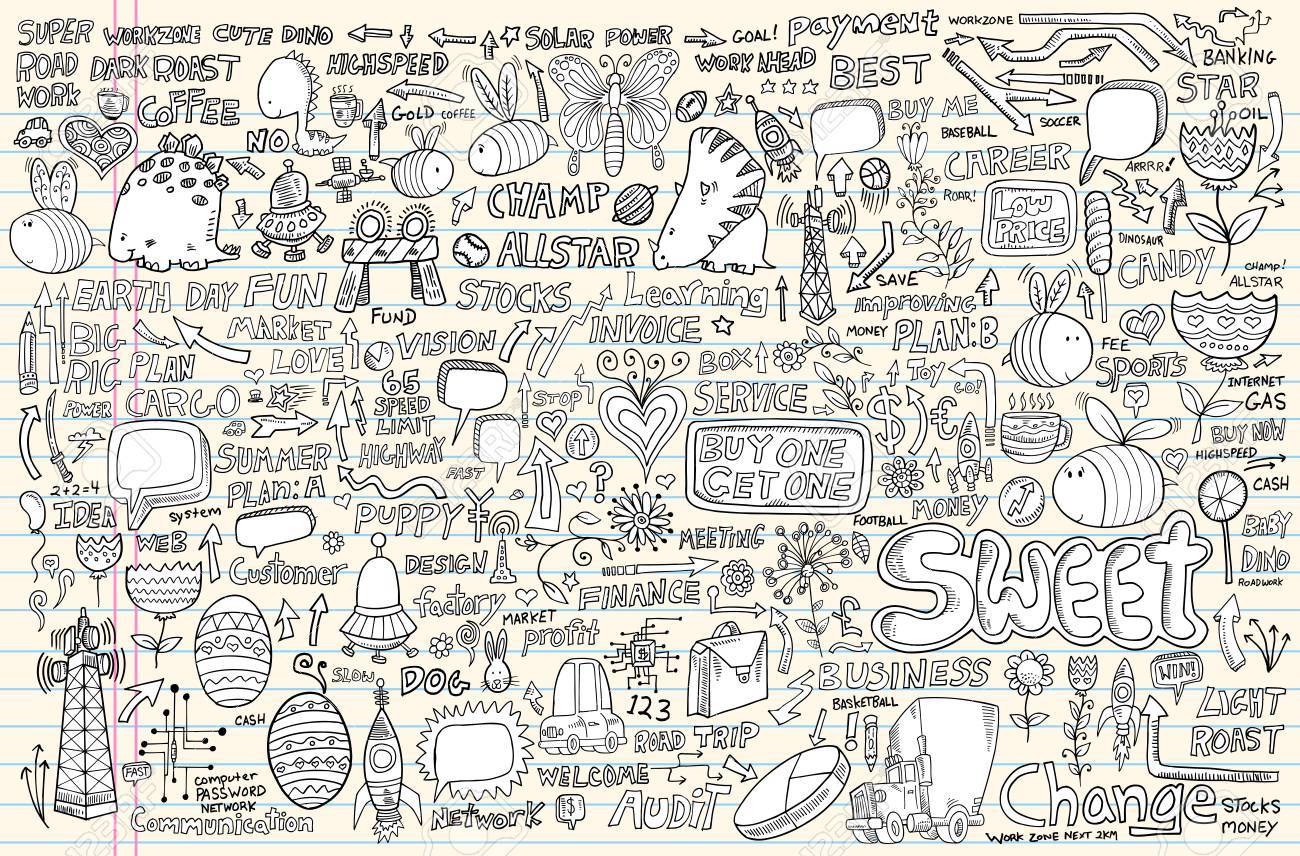 SUPER WORKZONE CUTE DINO
SOLAR POWER
GOAL!
payment
WORKZONE
ROAD WORK
DARK ROAST
HIGHSPEED
WORK AHEAD
BEST
BANKING
STAR
COFFEE
NO
GOLD COFFEE
BUY ME
BASEBALL
SOCCER
OIL
CAREER
ARRRR!
CHAMP
ROAR!
LOW
PRICE
ALLSTAR
DINOSAUR
CANDY
CHAMP!
ALLSTAR
EARTH DAY FUN
STOCKS
Learning
SAVE
improving
FUND
MARKET
INVOICE
MONEY
PLAN:B
BIG
RIG
PLAN
LOVE
VISION
BOX
FEE
SPORTS
TOY
GO!
INTERNET
GAS
POWER
CARGO
65
SPEED
LIMIT
STOP
SERVICE
$
€
BUY NOW
HIGHSPEED
SUMMER
HIGHWAY
BUY ONE
GET ONE
FAST
?
CASH
2+2=4
PLAN:A
IDEA
System
PUPPY
¥
FOOTBALL
MONEY
BABY
DINO
ROADWORK
WEB
MEETING
SWEET
Customer
DESIGN
FINANCE
factory
MARKET
profit
£
SLOW
DOG
$
BUSINESS
WIN!
LIGHT
ROAST
CASH
123
BASKETBALL
ROAD TRIP
!
FAST
computer
PASSWORD
NETWORK
Communication
WELCOME
Network
$
AUDIT
Change
STOCKS
MONEY
WORK ZONE NEXT 2KM